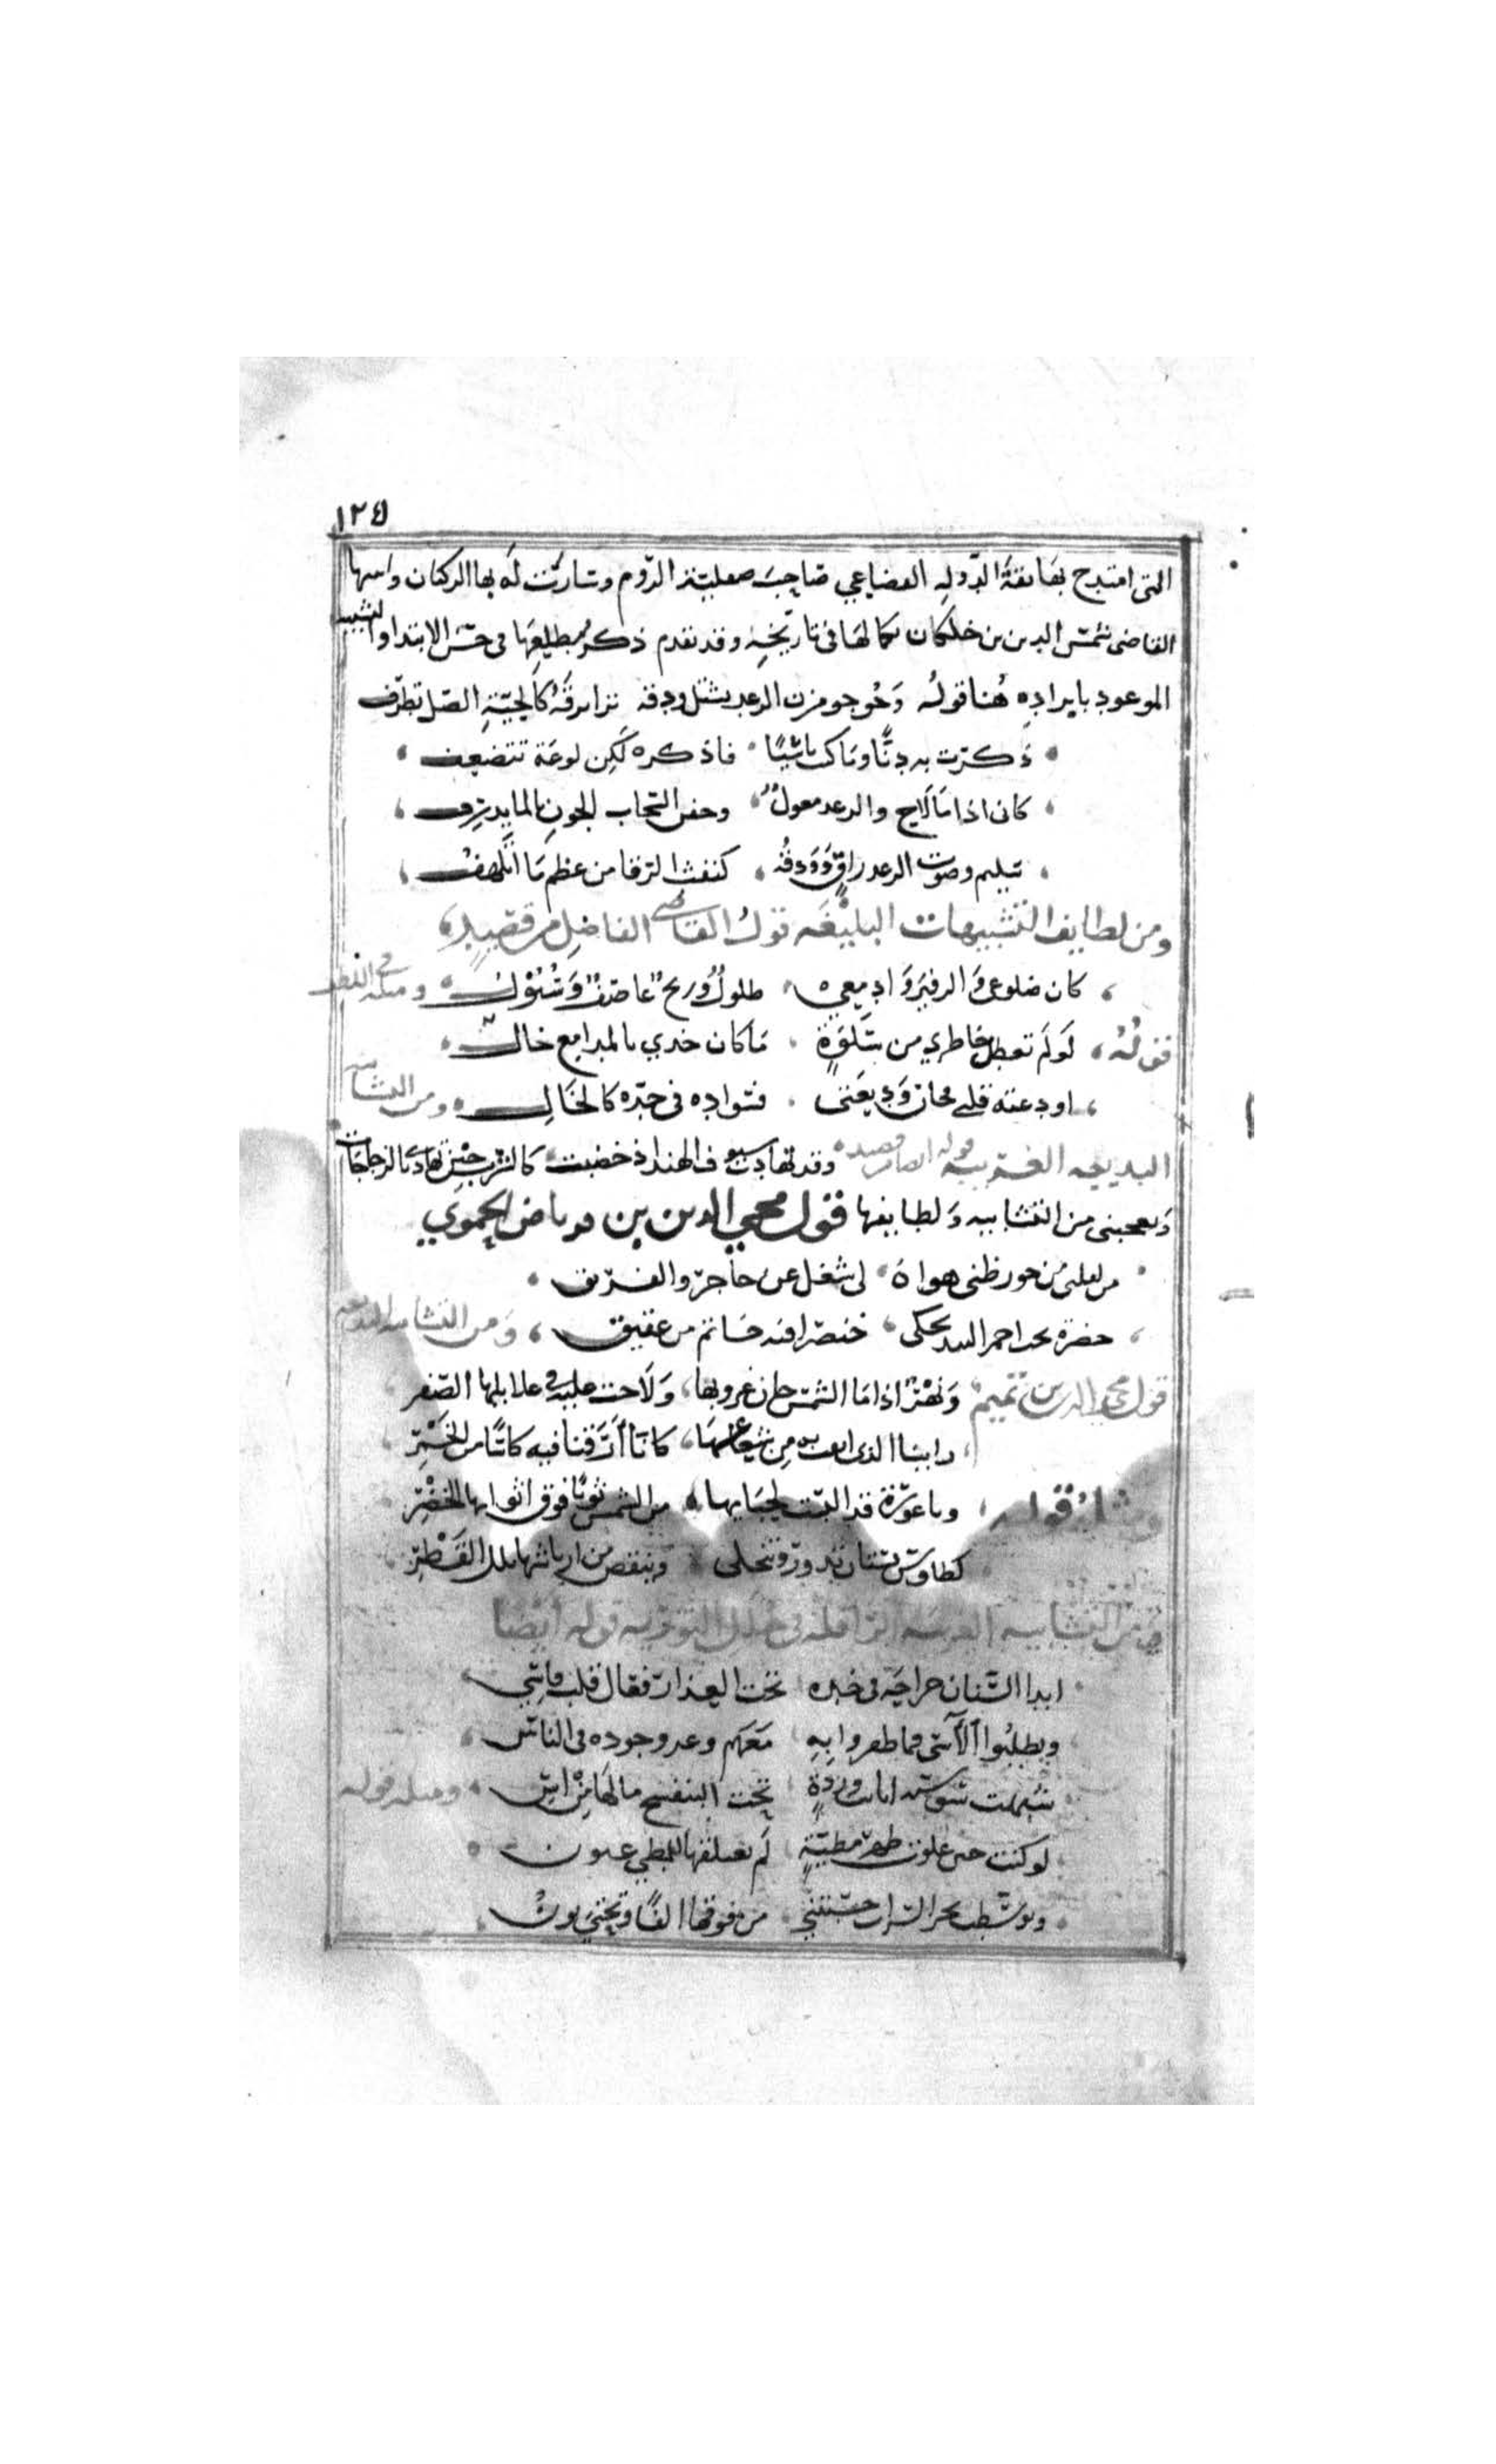 ١٢٤
التى امتدح بها ثقة الدوله القضاعي صاحب صقلية الروم وسارت له بها الركبان واسها
القاضى شمس الدين بن خلكان بكمالها فى تاريخه وقد تقدم ذكر مطلعها فى حسن الابتدا والتشبيه
الموعود بايراده هنا قوله وخوجو مزن الرعد يشتل ودقه ترا برقه كالحية الصل تطرف
ذكرت به ريّا وما كنت ناسيًا فاذكره لكن لوعة تتضعف
كانى اذا ما لاح والرعد معول وجفن السحاب الجون بالما يدرف
سليم وصوت الرعد راقٍ وودقه كنفث الرقا من عظم ما اتلهف
ومن لطايف التشبيهات البليغه قول القاضي الفاضل من قصيدٍ
كان ضلوعى والزفير وادمعي طلولٌ وريح عاصفٌ وسيول ومثله فى اللطف
قوله لو لم تعطل خاطري من سلوةٍ ما كان خدي بالمدامع خال
اودعته قلبي فخان وديعتى فسواده فى خده كالخال ومن التشابيه
البديعه الغريبه قوله ايضا من قصيده وقد تهادت سيوف الهند اذ خضبت كالشرب حين تهادى بالزجاجات
ويعجبنى من التشابيه ولطايفها قول محيي الدين بن قرناص الحموي
من لقلبى من جور ظبى هواه لى شغل عن حاجر والعقيق
خصره تحت احمر البند يحكى خنصرا فيه خاتم من عقيق ومن التشابيه البديعه
قول مجير الدين بن تميم ونهر اذا ما الشمس حان غروبها ولاحت عليه فى غلايلها الصفر
راينا الذى ابقت به من شعاعها كانّا ارقنا فيه كاسًا من الخمر
ومثله قوله وناعورة قد البست لحيايها من الشمس ثوبًا فوق اثوابها الخضر
كطاوس بستان تدور وتنجلى وينفض من ارياشها بلل القطر
ومن التشابيه الغريبه الرافله فى حلل التوريه قوله ايضا
ابدا السنان جراحة فى خده تحت العذار فقال قلب قاسِي
ويطلبوا الآسى فما ظفروا به معهم وعز وجوده فى الناس
شبهت سوسنه ابانت وردةٍ تحت البنفسج ما لها من اس ومثله قوله
لو كنت حين علوت ظهر مطيّةٍ لم تعتلقها للمطي عيون
وتوسطت بحر السراب حسبتنى من فوقها الفًا وتحتى نون